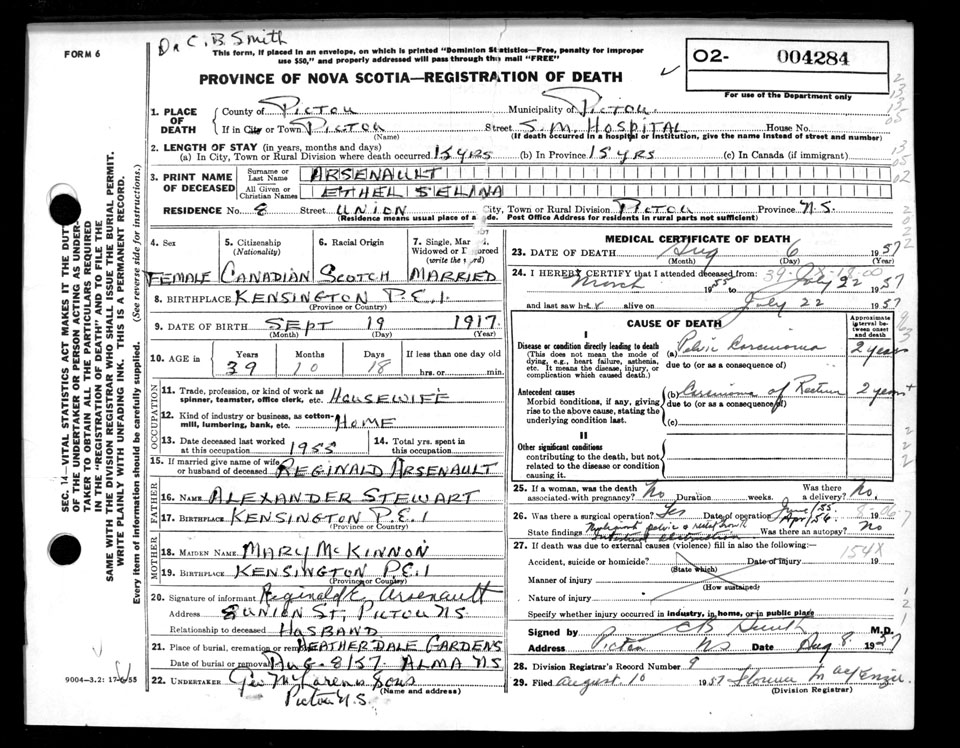 FORM 6
Dr C. B. Smith
This form, if placed in an envelope, on which is printed "Dominion Statistics—Free, penalty for improper
use $50," and properly addressed will pass through the mail "FREE"
PROVINCE OF NOVA SCOTIA—REGISTRATION OF DEATH
02- 004284
For use of the Department only
1. PLACE OF DEATH
County of PICTOU Municipality of PICTOU.
If in City or Town PICTOU (Name) Street S. M. HOSPITAL House No.
(If death occurred in a hospital or institution, give the name instead of street and number)
2. LENGTH OF STAY (in years, months and days)
(a) In City, Town or Rural Division where death occurred 15 YRS (b) In Province 15 YRS (c) In Canada (if immigrant)
3. PRINT NAME OF DECEASED
Surname or Last Name ARSENAULT
All Given or Christian Names ETHEL SELINA
RESIDENCE No. 8 Street UNION City, Town or Rural Division PICTOU Province N.S.
Residence means usual place of abode. Post Office Address for residents in rural parts not sufficient)
4. Sex 5. Citizenship (Nationality) 6. Racial Origin 7. Single, Married, Widowed or Divorced (write the word)
FEMALE CANADIAN SCOTCH MARRIED
8. BIRTHPLACE KENSINGTON P.E.I.
(Province or Country)
9. DATE OF BIRTH SEPT 19 1917
(Month) (Day) (Year)
10. AGE in Years Months Days If less than one day old
39 10 18 hrs. or min.
OCCUPATION
11. Trade, profession, or kind of work as
spinner, teamster, office clerk, etc. HOUSEWIFE
12. Kind of industry or business, as cotton-
mill, lumbering, bank, etc. HOME
13. Date deceased last worked at this occupation 1955 14. Total yrs. spent in this occupation
15. If married give name of wife
or husband of deceased REGINALD ARSENAULT
FATHER
16. NAME ALEXANDER STEWART
17. BIRTHPLACE KENSINGTON P.E.I
(Province or Country)
MOTHER
18. MAIDEN NAME MARY MCKINNON
19. BIRTHPLACE KENSINGTON P.E.I
(Province or Country)
20. Signature of informant Reginald E. Arsenault
Address 8 UNION ST, PICTOU N.S
Relationship to deceased HUSBAND
21. Place of burial, cremation or removal HEATHERDALE GARDENS
Date of burial or removal AUG-8/57. ALMA NS
22. UNDERTAKER Geo McLaren & Sons
(Name and address)
Pictou N.S.
9004—3.2: 17-6-55
MEDICAL CERTIFICATE OF DEATH
23. DATE OF DEATH Aug 6 1957
(Month) (Day)
24. I HEREBY CERTIFY that I attended deceased from:
March 1955 to July 22 1957
and last saw her alive on July 22 1957
CAUSE OF DEATH
Approximate interval between onset and death
I
Disease or condition directly leading to death
(This does not mean the mode of
dying, e.g., heart failure, asthenia,
etc. It means the disease, injury, or
complication which caused death.)
(a) Pelvic Carcinoma 2 years
due to (or as a consequence of)
Antecedent causes
Morbid conditions, if any, giving
rise to the above cause, stating the
underlying condition last.
(b) Carcinoma of Rectum 2 years +
due to (or as a consequence of)
(c)
II
Other significant conditions
contributing to the death, but not
related to the disease or condition
causing it.
25. If a woman, was the death
associated with pregnancy? No Duration weeks. Was there a delivery? No.
26. Was there a surgical operation? Yes Date of operation June/55 Apr/56
State findings Malignant pelvic & rectal growth
Intestinal obstruction. Was there an autopsy? No
27. If death was due to external causes (violence) fill in also the following:—
154X
Accident, suicide or homicide? (State which) Date of injury 19
Manner of injury (How sustained)
Nature of injury
Specify whether injury occurred in industry, in home, or in public place
Signed by CB Smith M.D.
Address Pictou NS Date Aug 8 1957
28. Division Registrar's Record Number 9
29. Filed August 10 1957 Florence MacKenzie.
(Division Registrar)
SEC. 14—VITAL STATISTICS ACT MAKES IT THE DUTY
OF THE UNDERTAKER OR PERSON ACTING AS UNDER-
TAKER TO OBTAIN ALL THE PARTICULARS REQUIRED
IN THE "REGISTRATION OF DEATH" AND TO FILE THE
SAME WITH THE DIVISION REGISTRAR WHO SHALL ISSUE THE BURIAL PERMIT.
WRITE PLAINLY WITH UNFADING INK. THIS IS A PERMANENT RECORD.
Every item of information should be carefully supplied. (See reverse side for instructions.)